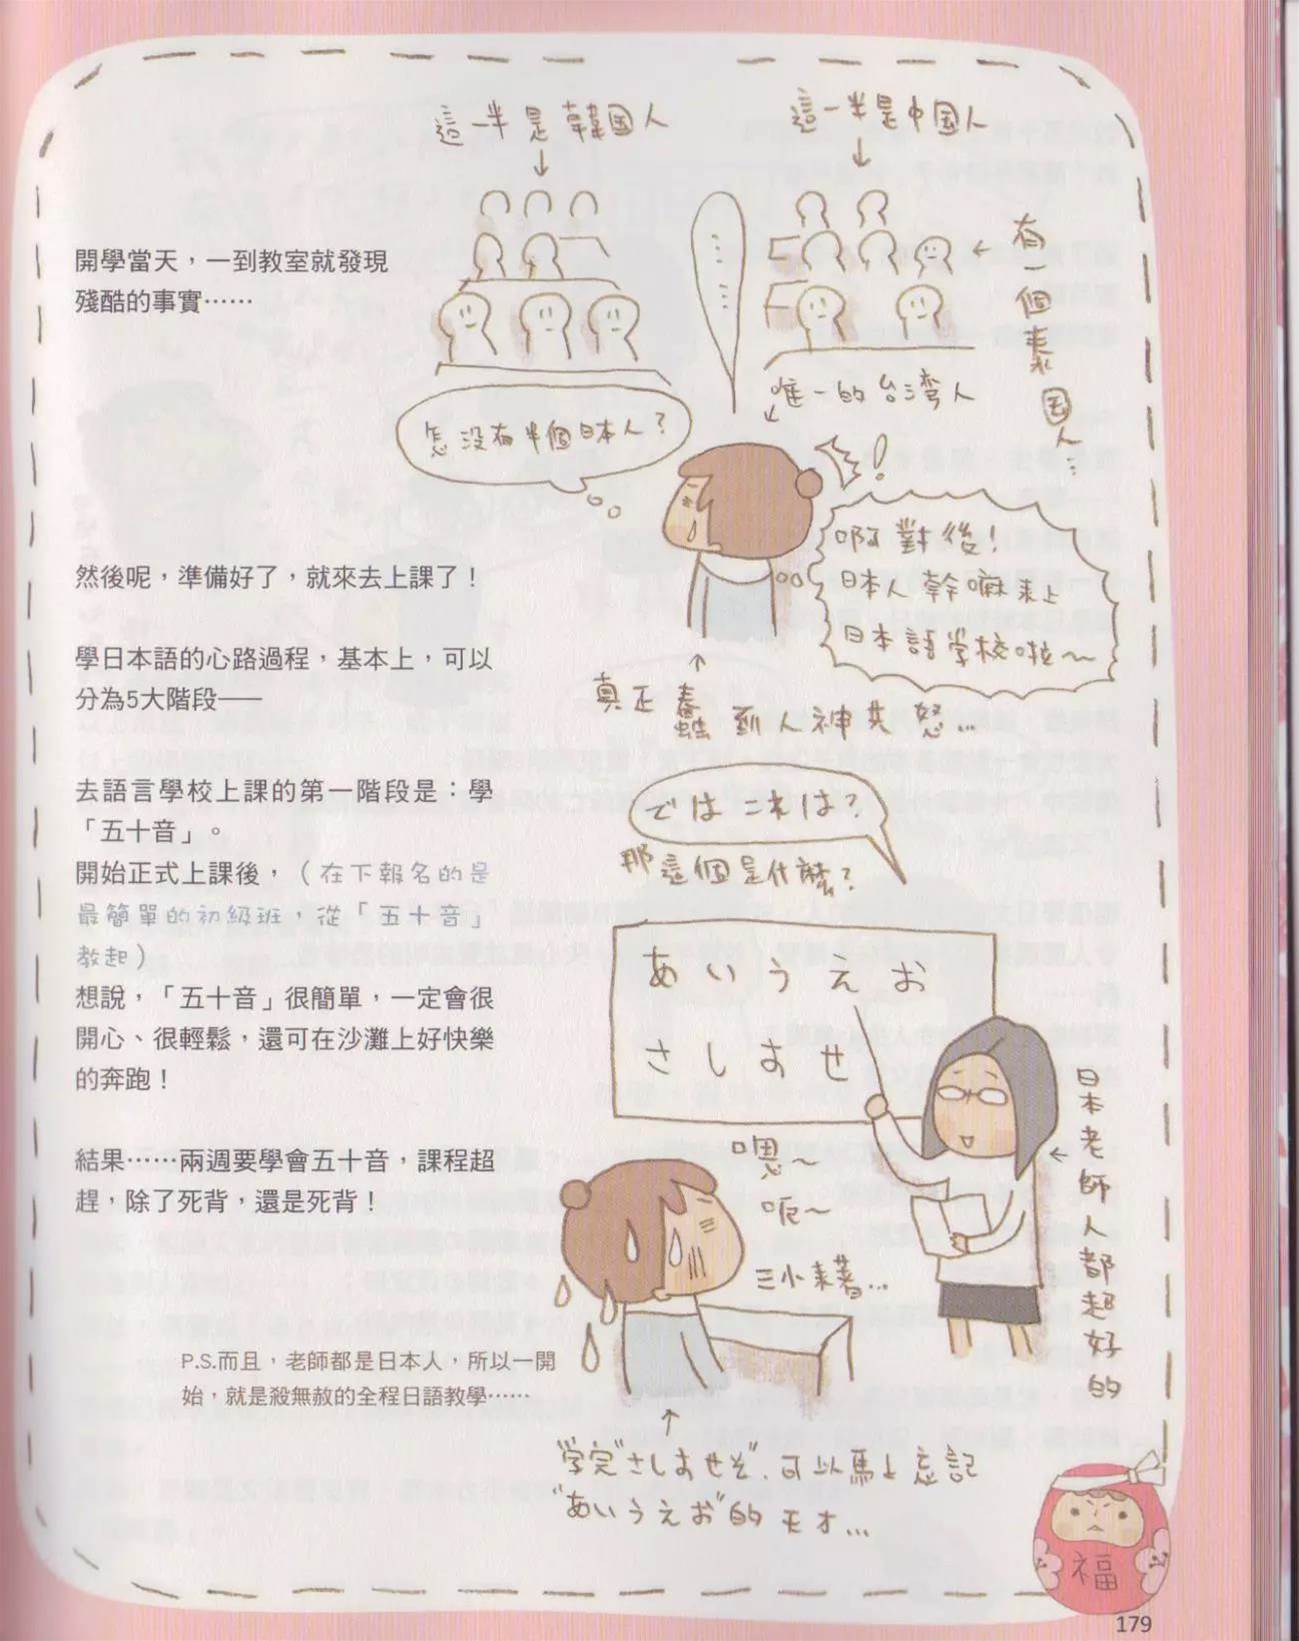 這一半是韓國人
↓
這一半是中國人
↓
……
←有一個泰國人…
唯一的台灣人
怎沒有半個日本人?
!
啊對後!
日本人幹嘛來上
日本語學校啦～
真正蠢到人神共怒…
開學當天，一到教室就發現
殘酷的事實……
然後呢，準備好了，就來去上課了！
學日本語的心路過程，基本上，可以
分為5大階段——
去語言學校上課的第一階段是：學
「五十音」。
開始正式上課後，（在下報名的是
最簡單的初級班，從「五十音」
教起）
想說，「五十音」很簡單，一定會很
開心、很輕鬆，還可在沙灘上好快樂
的奔跑！
結果……兩週要學會五十音，課程超
趕，除了死背，還是死背！
P.S.而且，老師都是日本人，所以一開
始，就是殺無赦的全程日語教學……
では これは?
那這個是什麼?
あいうえお
さしすせ
←日本老師人都超好的
嗯～
呃～
三小來著…
學完"さしすせそ",可以馬上忘記
"あいうえお"的天才…
福
179